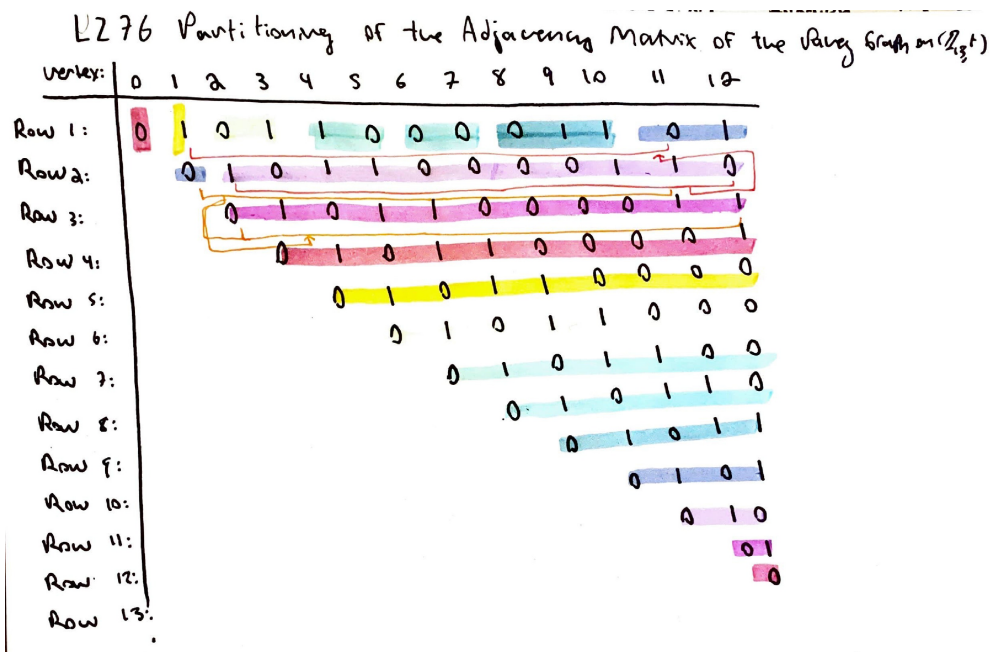 L276 Partitioning of the Adjacency Matrix of the Paley Graph on (ℤ₁₃,+)
vertex: 0 1 2 3 4 5 6 7 8 9 10 11 12
Row 1: 0 1 0 1 1 0 0 0 0 1 1 0 1
Row 2: 0 1 0 1 1 0 0 0 0 1 1 0
Row 3: 0 1 0 1 1 0 0 0 0 1 1
Row 4: 0 1 0 1 1 0 0 0 0 1
Row 5: 0 1 0 1 1 0 0 0 0
Row 6: 0 1 0 1 1 0 0 0
Row 7: 0 1 0 1 1 0 0
Row 8: 0 1 0 1 1 0
Row 9: 0 1 0 1 1
Row 10: 0 1 0 1
Row 11: 0 1 0
Row 12: 0 1
Row 13: 0